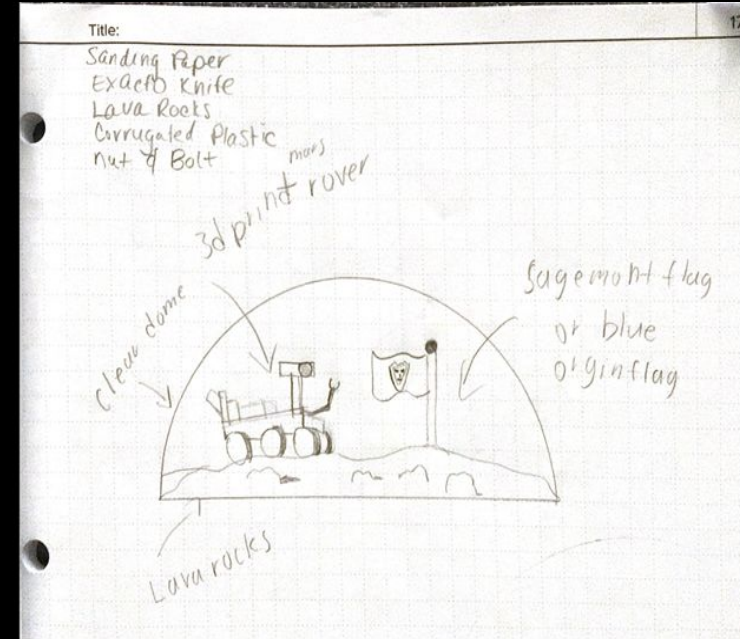 Title:
Sanding Paper
Exacto Knife
Lava Rocks
Corrugated Plastic
nut & Bolt
mars
3d print rover
clear dome
Sagemont flag
or blue
orgin flag
Lava rocks